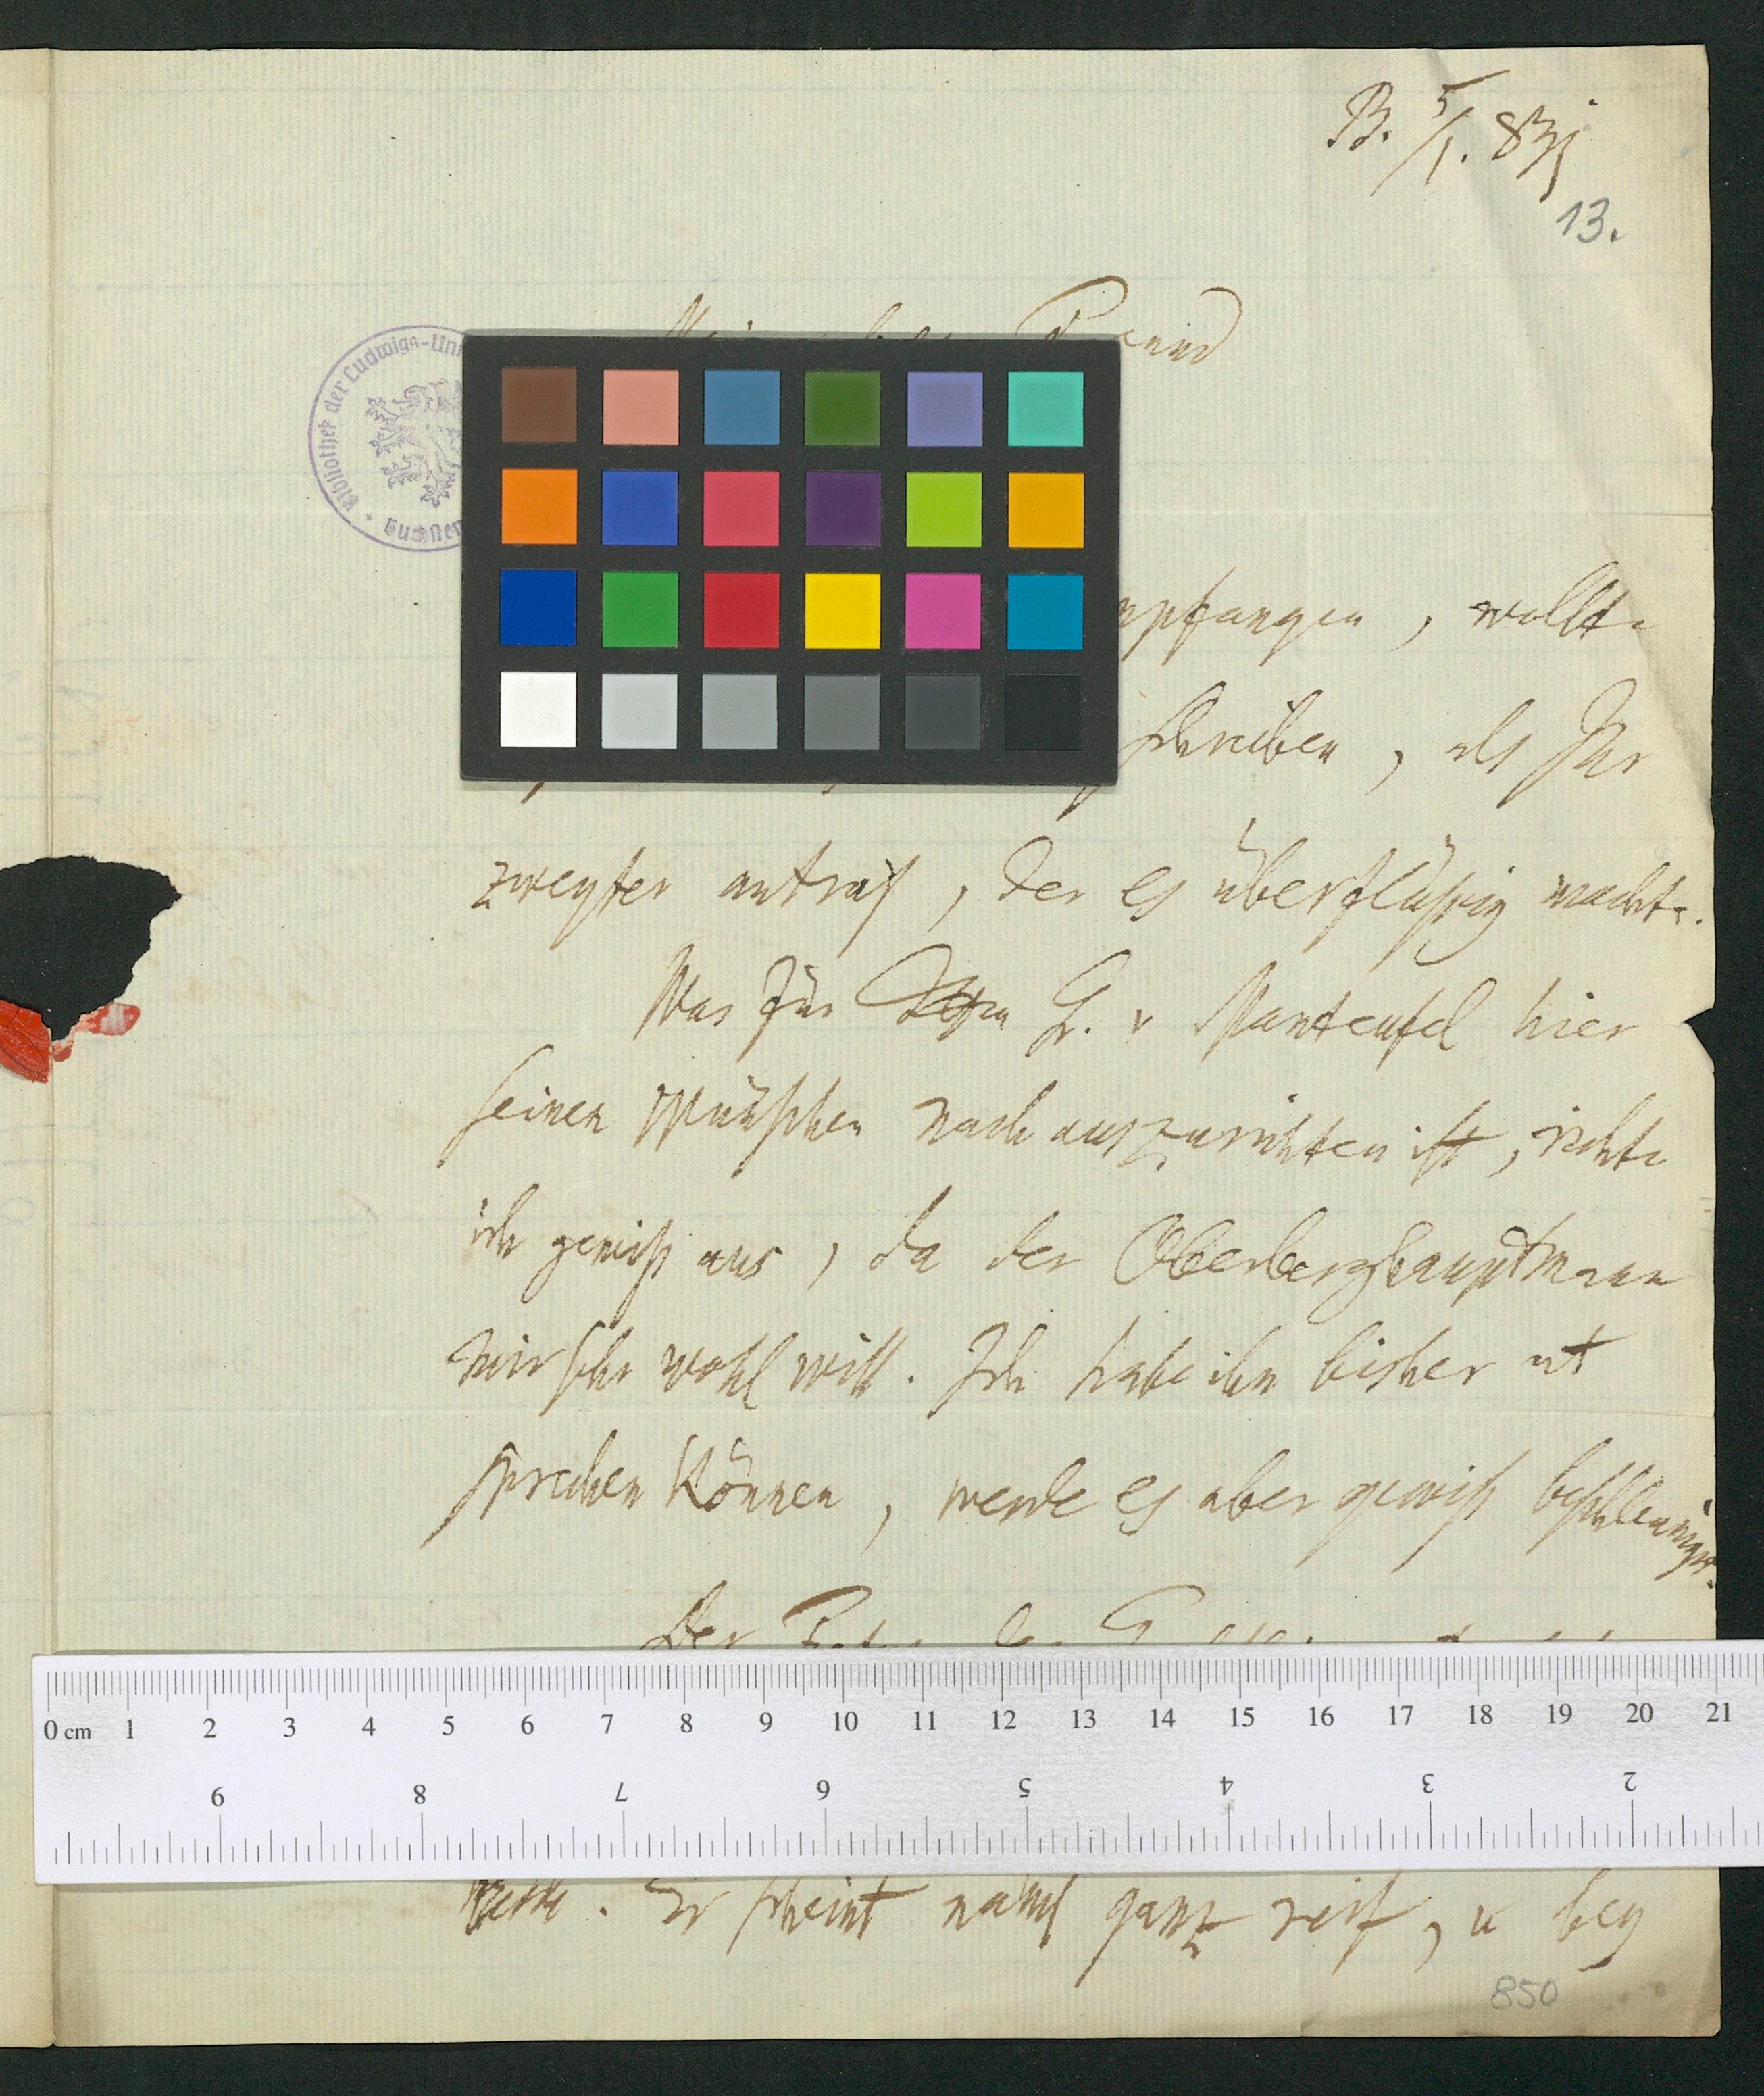 B. 5/1. 831
13.
Freund
Bibliothek der Ludwigs-Uni
empfangen, wollte
schreiben, als Ihr
zweyter antraf, der es überflüssig machte.
Was für H. v Manteufel hier
seinen Wünschen nach auszurichten ist, richte
ich gewiß aus, da der Oberberghauptmann
mir sehr wohl will. Ich habe ihn bisher nt
sprechen können, werde es aber gewiß beschleunigen.
Der
0 cm 1 2 3 4 5 6 7 8 9 10 11 12 13 14 15 16 17 18 19 20 21
9 8 7 6 5 4 3 2
Er scheint ganz reif, u bey
850